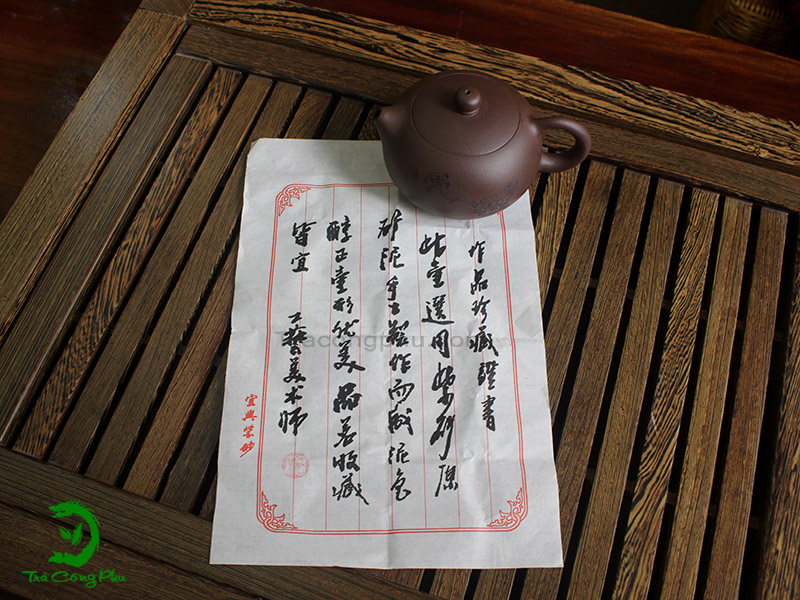 作品珍藏證書
此壶選用紫砂原
矿泥手工製作而成泥色
醇正壶形优美品茗收藏
皆宜 工藝美术师
宜興紫砂
Tracongphu.com
Trà Công Phu